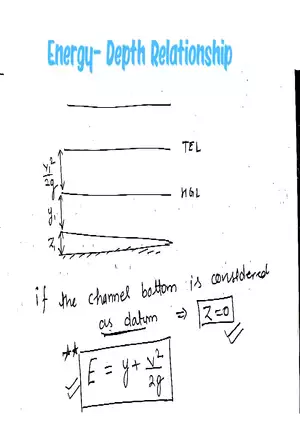 Energy- Depth Relationship
TEL
V₁²/2g
HGL
y₁
Z₁
if the channel bottom is considered
as datum ⇒ Z=0
E = y + V²/2g